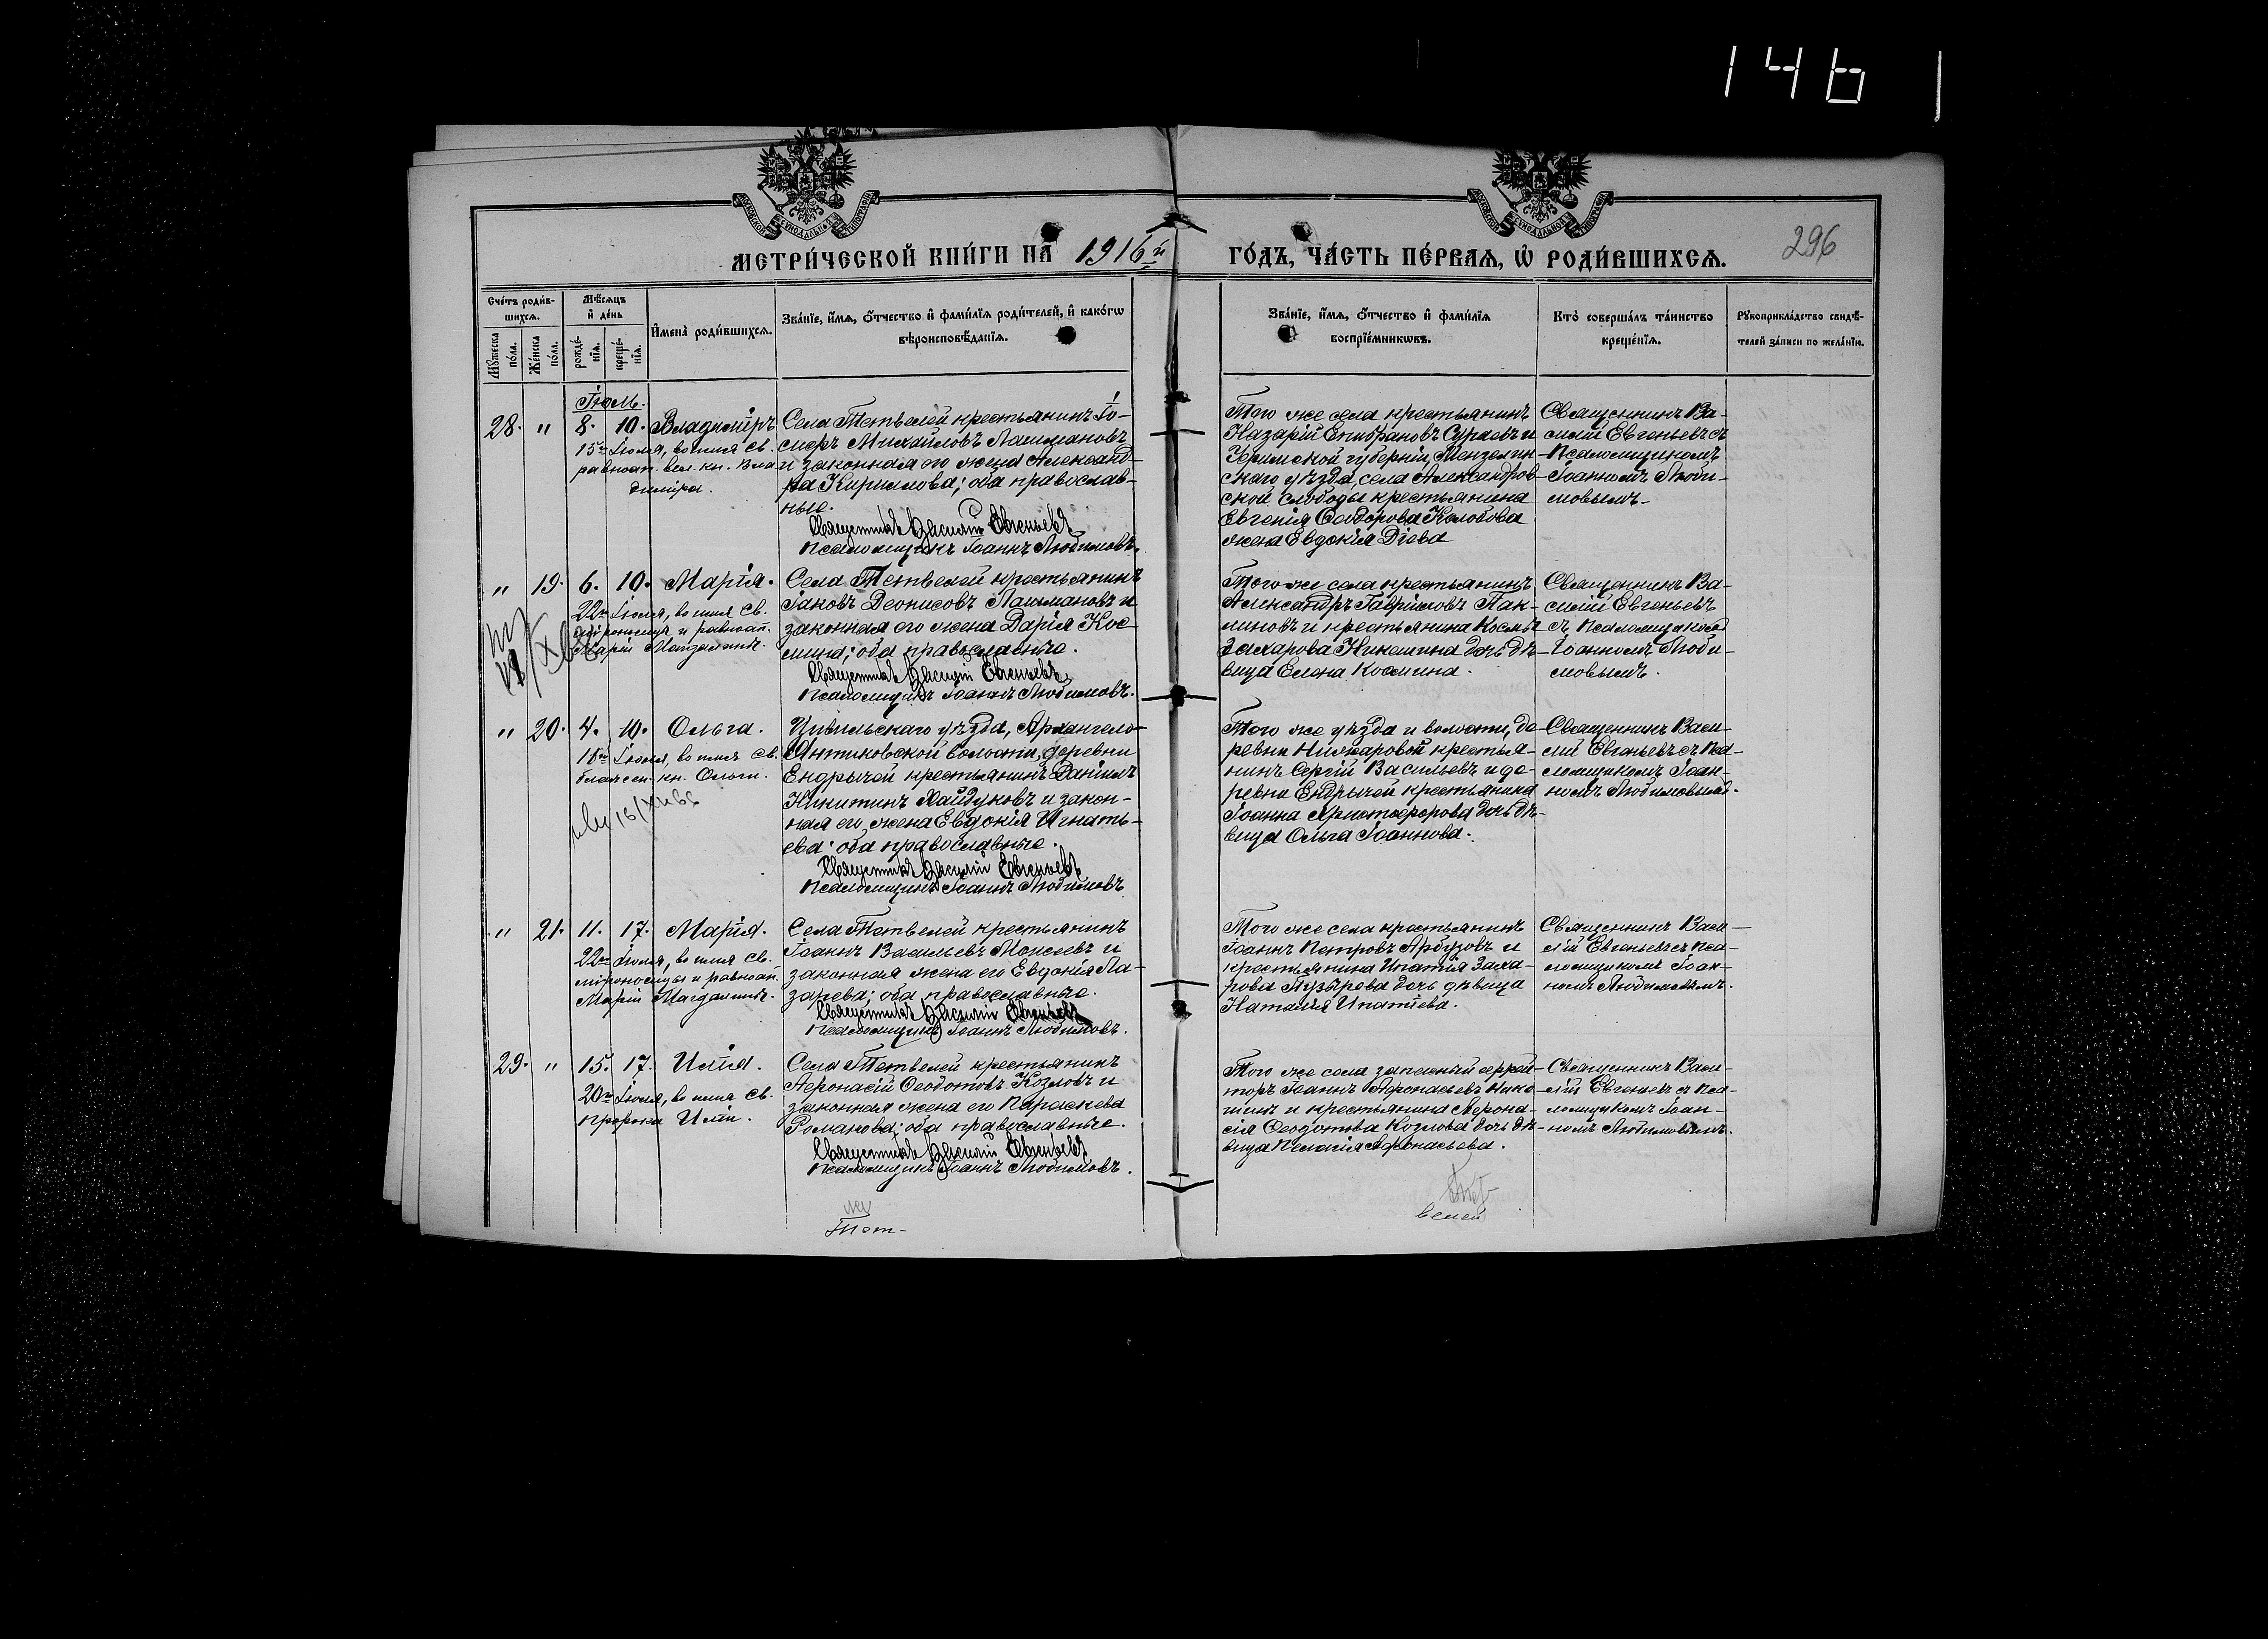 146
МЕТРИЧЕСКОЙ КНИГИ НА 1916й ГОДЪ, ЧАСТЬ ПЕРВАЯ, Ѡ РОДИВШИХСЯ.
296
Счетъ родив-
шихся.
Мѣсяцъ
и день
Мужеска
пола.
Женска
пола.
рожде-
нія.
креще-
нія.
Имена родившихся.
Званіе, имя, отчество и фамилія родителей, и какогѡ
вѣроисповѣданія.
Званіе, имя, отчество и фамилія
воспріемникѡвъ.
Кто совершалъ таинство
крещенія.
Рукоприкладство свидѣ-
телей записи по желанію.
Іюль.
28. " 8. 10. Владиміръ
15го Іюля, во имя св.
равноап. вел. кн. Вла
диміра.
Села Тетвелей крестьянинъ Іо-
сифъ Михайловъ Лашмановъ
и законная его жена Александ-
ра Кириллова; оба православ-
ные.
Священникъ Василій Евгеньевъ
Псаломщикъ Іоаннъ Любимовъ.
Того же села крестьянинъ
Назарій Епифановъ Сураевъ и
губерніи, Мензелин-
скаго уѣзда, села Александров-
ской слободы крестьянина
Евгенія Ѳеодорова Колобова
жена Евдокія
Священникъ Ва-
силій Евгеньевъ съ
Псаломщикомъ
Іоанномъ Люби-
мовымъ.
" 19. 6. 10. Марія.
22го Іюля, во имя св.
мѵроносицы и равноап.
Маріи Магдалины.
Села Тетвелей крестьянинъ
Іаковъ Деонисовъ Лашмановъ и
законная его жена Дарія Кос-
мина; оба православные.
Священникъ Василій Евгеньевъ
Псаломщикъ Іоаннъ Любимовъ.
Того же села крестьянинъ
Александръ Гавриловъ Пак-
линовъ и крестьянина Космы
Захарова Никишина дочь дѣ-
вица Елена Космина.
Священникъ Ва-
силій Евгеньевъ
съ Псаломщикомъ
Іоанномъ Люби-
мовымъ.
" 20. 4. 10. Ольга.
Іюля, во имя св.
блажен. кн. Ольги.
Цивильскаго уѣзда, Архангело-
Янтиковской волости, деревни
Ендрычей крестьянинъ Даніилъ
Никитинъ Хайдуковъ и закон-
ная его жена Евдокія Игнать-
ева; оба православные.
Священникъ Василій Евгеньевъ
Псаломщикъ Іоаннъ Любимовъ
Того же уѣзда и волости, де-
ревни крестья-
нинъ Сергій Васильевъ и де-
ревни Ендрычей крестьянина
Іоанна Христофорова дочь дѣ-
вица Ольга Іоаннова.
Священникъ Васи-
лій Евгеньевъ съ Пса-
ломщикомъ Іоан-
номъ Любимовымъ.
" 21. 11. 17. Марія.
22го Іюля, во имя св.
мѵроносицы и равноап.
Маріи Магдалины.
Села Тетвелей крестьянинъ
Іоаннъ Васильевъ Моисеевъ и
законная жена его Евдокія Ла-
зарева; оба православные.
Священникъ Василій Евгеньевъ
Псаломщикъ Іоаннъ Любимовъ.
Того же села крестьянинъ
Іоаннъ Петровъ Арбузовъ и
крестьянина Ипатія Заха-
рова Пузырева дочь дѣвица
Наталія Ипатіева.
Священникъ Васи-
лій Евгеньевъ съ Пса-
ломщикомъ Іоан-
номъ Любимовымъ.
29. " 15. 17. Илія.
20го Іюля, во имя св.
пророка Иліи.
Села Тетвелей крестьянинъ
Аѳонасій Ѳеодотовъ Козловъ и
законная жена его Параскева
Романова; оба православные.
Священникъ Василій Евгеньевъ
Псаломщикъ Іоаннъ Любимовъ.
Того же села запасный ефрей-
торъ Іоаннъ Аѳонасьевъ Ники-
шинъ и крестьянина Аѳона-
сія Ѳеодотова Козлова дочь дѣ-
вица Пелагія Аѳонасьева.
Священникъ Васи-
лій Евгеньевъ съ Пса-
ломщикомъ Іоан-
номъ Любимовымъ.
Тет-
велей